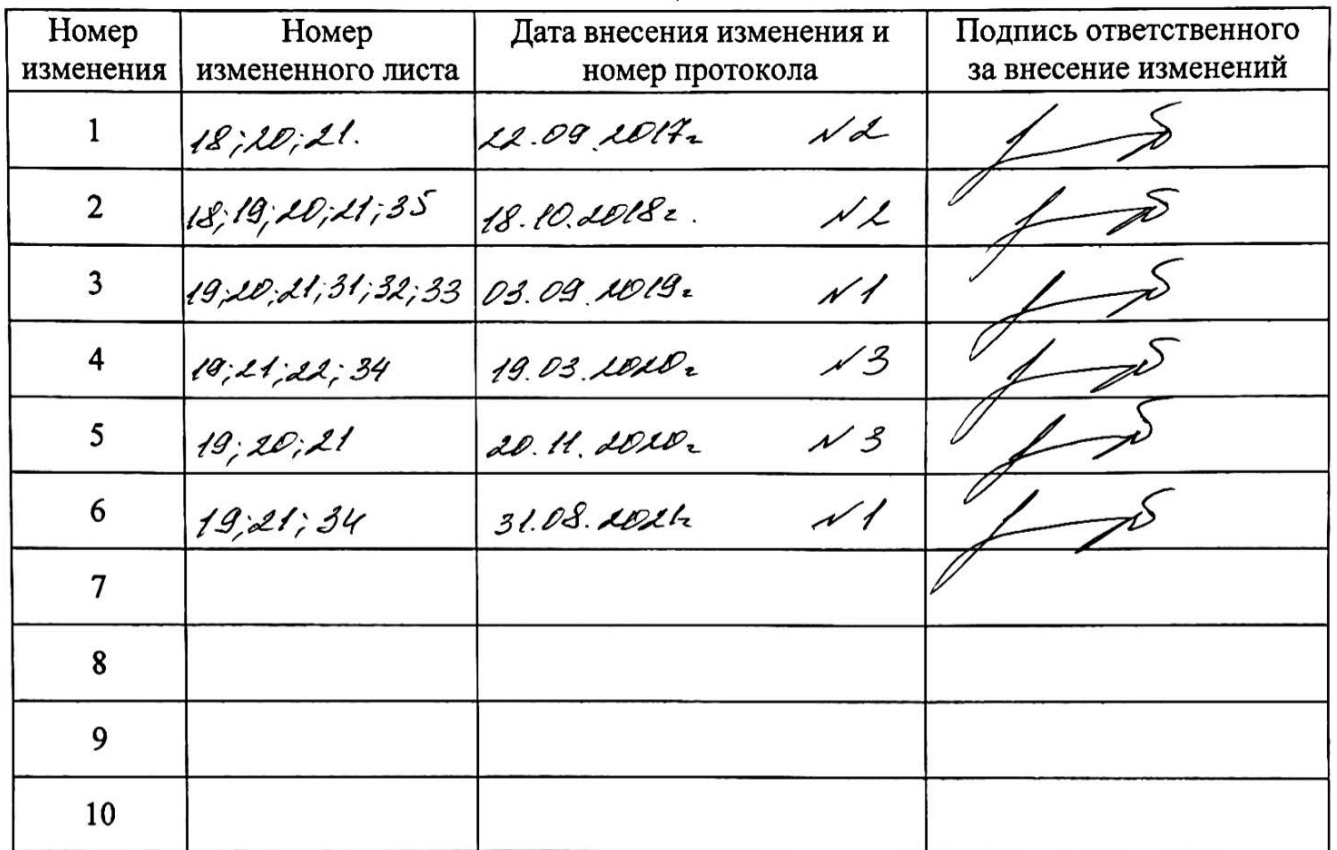 Номер изменения | Номер измененного листа | Дата внесения изменения и номер протокола | Подпись ответственного за внесение изменений
1 | 18;20;21. | 22.09.2017г №2
2 | 18;19;20;21;35 | 18.10.2018г. №2
3 | 19;20;21;31;32;33 | 03.09.2019г №1
4 | 19;21;22;34 | 19.03.2020г №3
5 | 19;20;21 | 20.11.2020г №3
6 | 19;21;34 | 31.08.2021г №1
7
8
9
10